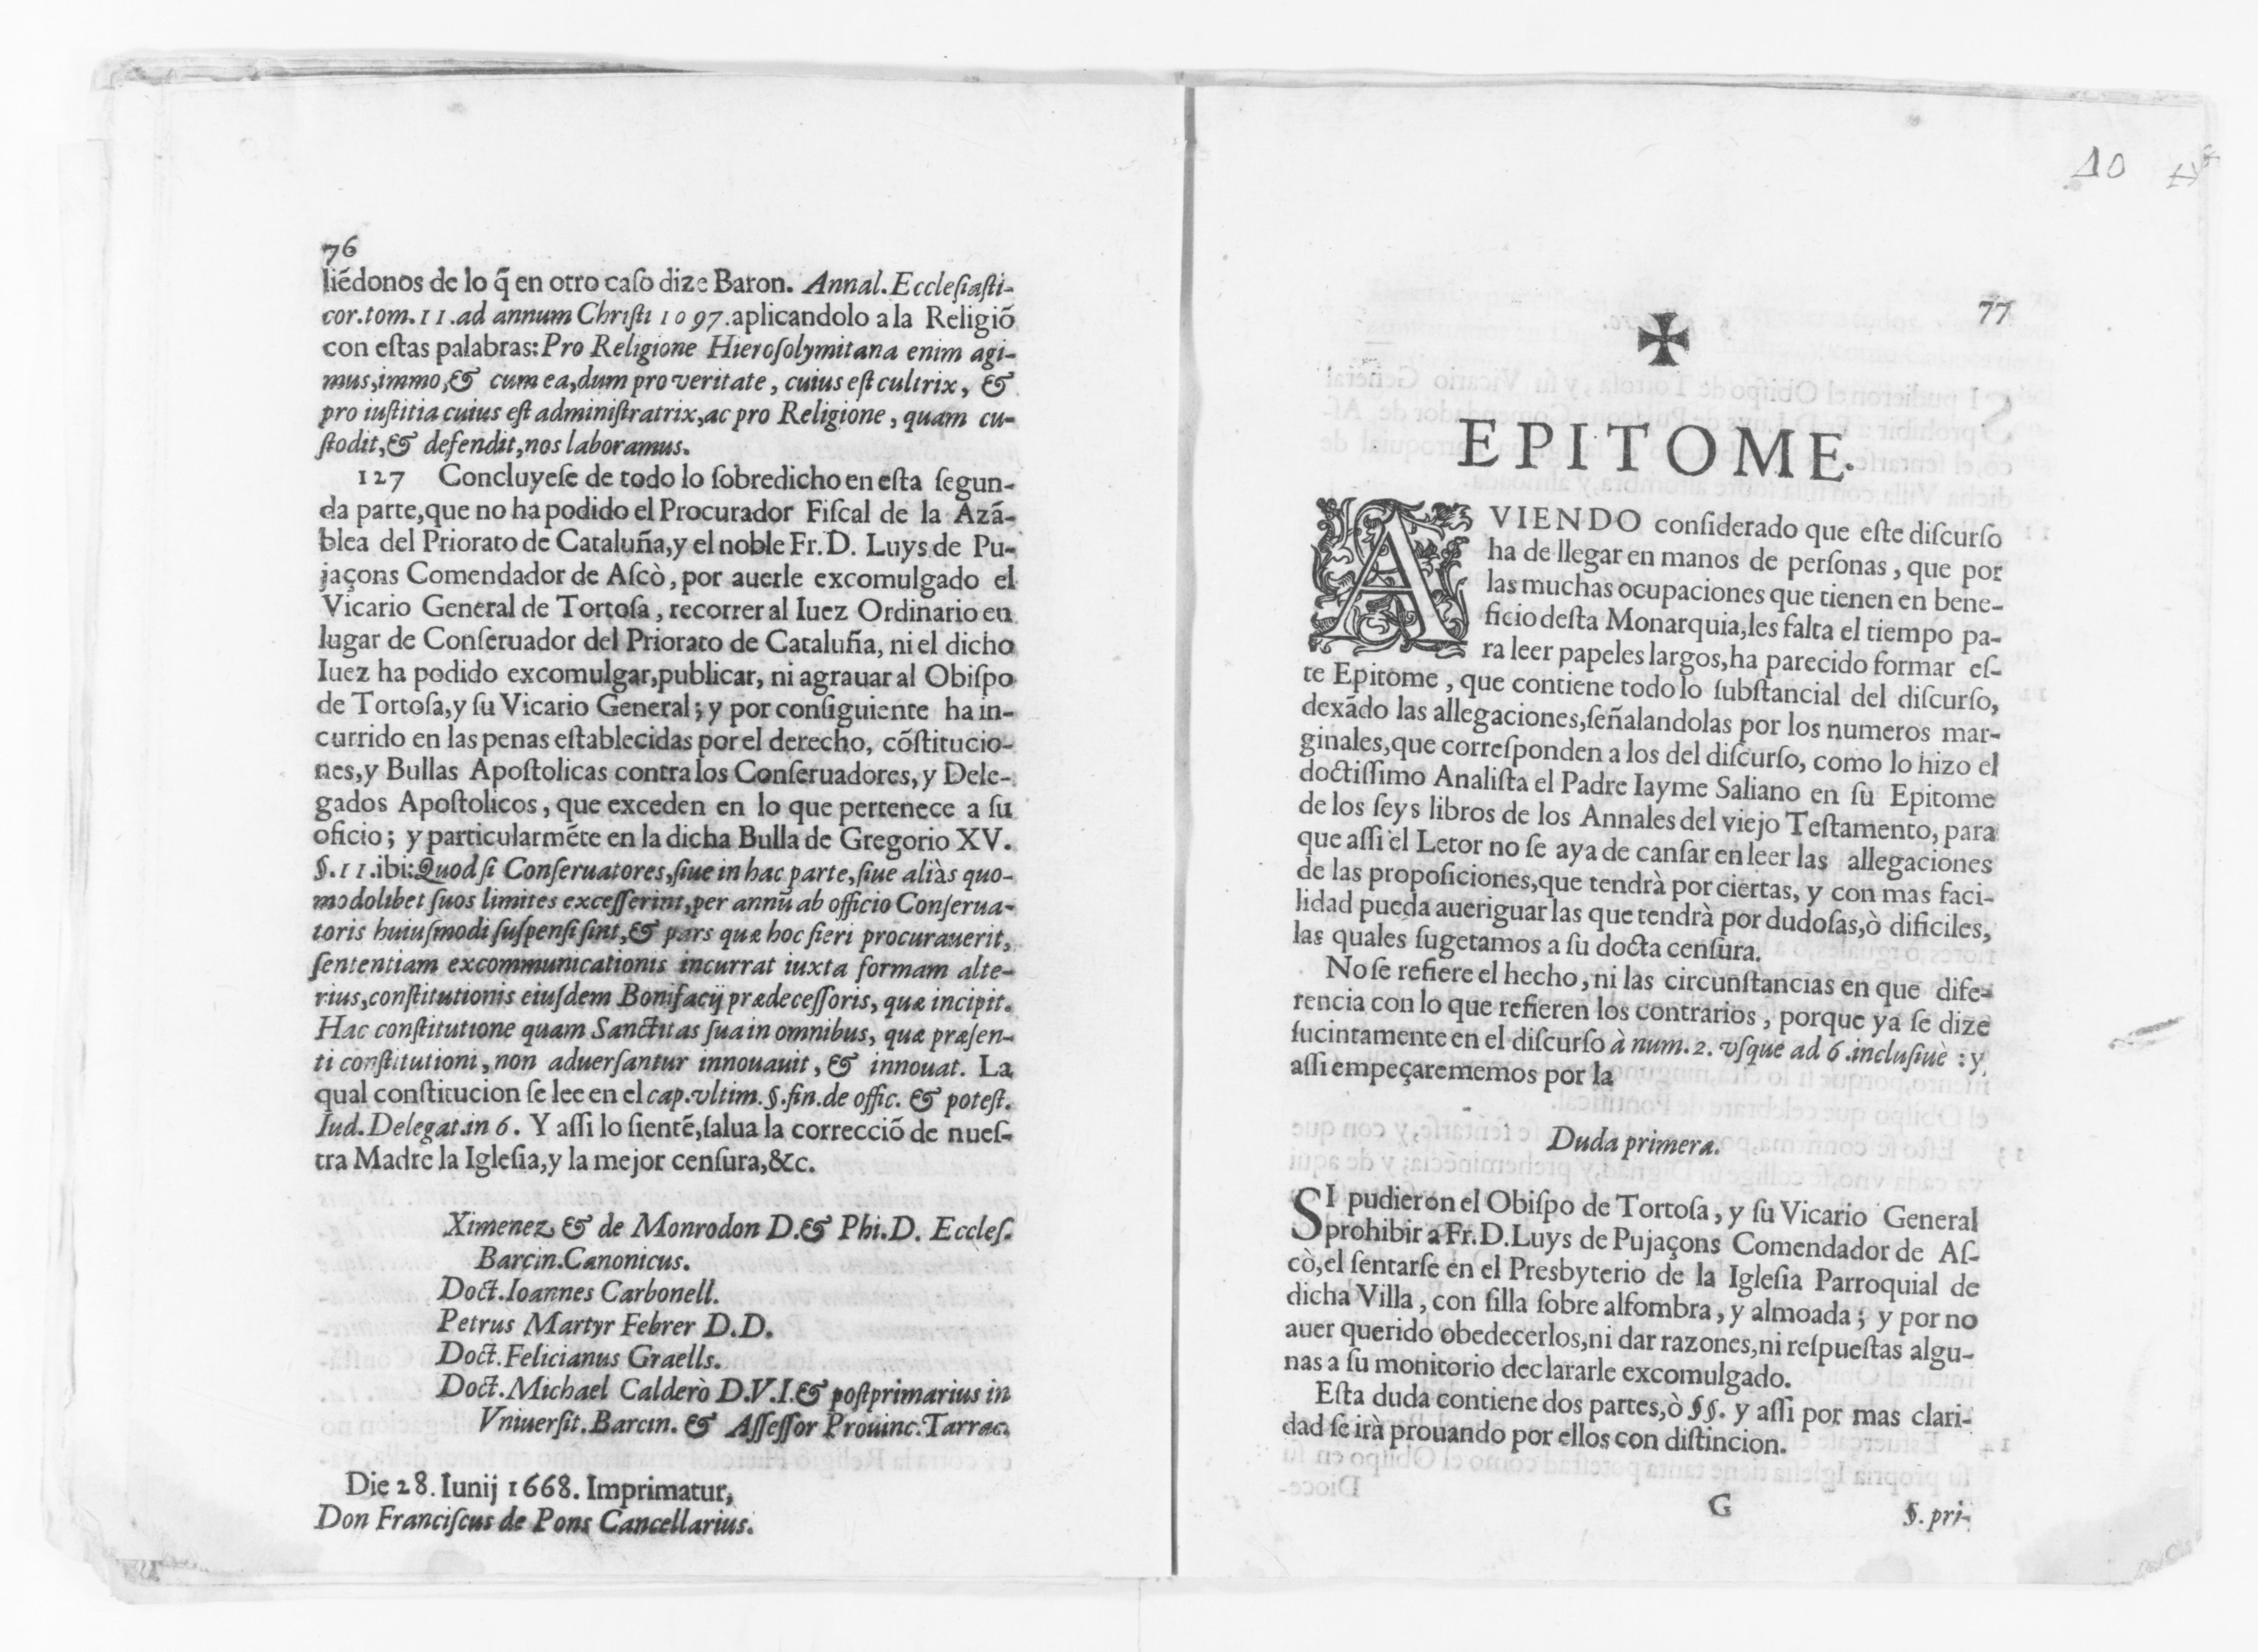 76
liẽdonos de lo q̃ en otro caſo dize Baron. Annal. Eccleſiaſti-
cor. tom. 11. ad annum Chriſti 1097. aplicandolo a la Religiõ
con eſtas palabras: Pro Religione Hieroſolymitana enim agi-
mus, immo, & cum ea, dum pro veritate, cuius eſt cultrix, &
pro iuſtitia cuius eſt adminiſtratrix, ac pro Religione, quam cu-
ſtodit, & defendit, nos laboramus.
127 Concluyeſe de todo lo ſobredicho en eſta ſegun-
da parte, que no ha podido el Procurador Fiſcal de la Azã-
blea del Priorato de Cataluña, y el noble Fr. D. Luys de Pu-
jaçons Comendador de Aſcò, por auerle excomulgado el
Vicario General de Tortoſa, recorrer al Iuez Ordinario en
lugar de Conſeruador del Priorato de Cataluña, ni el dicho
Iuez ha podido excomulgar, publicar, ni agrauar al Obiſpo
de Tortoſa, y ſu Vicario General; y por conſiguiente ha in-
currido en las penas eſtablecidas por el derecho, cõſtitucio-
nes, y Bullas Apoſtolicas contra los Conſeruadores, y Dele-
gados Apoſtolicos, que exceden en lo que pertenece a ſu
oficio; y particularmẽte en la dicha Bulla de Gregorio XV.
§. 11. ibi: Quod ſi Conſeruatores, ſiue in hac parte, ſiue aliàs quo-
modolibet ſuos limites exceſſerint, per annũ ab officio Conſerua-
toris huiuſmodi ſuſpenſi ſint, & pars quæ hoc fieri procurauerit,
ſententiam excommunicationis incurrat iuxta formam alte-
rius, conſtitutionis eiuſdem Bonifacij prædeceſſoris, quæ incipit.
Hac conſtitutione quam Sanctitas ſua in omnibus, quæ præſen-
ti conſtitutioni, non aduerſantur innouauit, & innouat. La
qual conſtitucion ſe lee en el cap. vltim. §. fin. de offic. & poteſt.
Iud. Delegat. in 6. Y aſſi lo ſientẽ, ſalua la correcciõ de nueſ-
tra Madre la Igleſia, y la mejor cenſura, &c.
Ximenez & de Monrodon D. & Phi. D. Eccleſ.
Barcin. Canonicus.
Doct. Ioannes Carbonell.
Petrus Martyr Febrer D. D.
Doct. Felicianus Graells.
Doct. Michael Calderò D. V. I. & poſtprimarius in
Vniuerſit. Barcin. & Aſſeſſor Prouinc. Tarrac.
Die 28. Iunij 1668. Imprimatur,
Don Franciſcus de Pons Cancellarius.
40
77
EPITOME.
AVIENDO conſiderado que eſte diſcurſo
ha de llegar en manos de perſonas, que por
las muchas ocupaciones que tienen en bene-
ficio deſta Monarquia, les falta el tiempo pa-
ra leer papeles largos, ha parecido formar eſ-
te Epitome, que contiene todo lo ſubſtancial del diſcurſo,
dexãdo las allegaciones, ſeñalandolas por los numeros mar-
ginales, que correſponden a los del diſcurſo, como lo hizo el
doctiſſimo Analiſta el Padre Iayme Saliano en ſu Epitome
de los ſeys libros de los Annales del viejo Teſtamento, para
que aſſi el Letor no ſe aya de canſar en leer las allegaciones
de las propoſiciones, que tendrà por ciertas, y con mas faci-
lidad pueda aueriguar las que tendrà por dudoſas, ò dificiles,
las quales ſugetamos a ſu docta cenſura.
No ſe refiere el hecho, ni las circunſtancias en que dife-
rencia con lo que refieren los contrarios, porque ya ſe dize
ſucintamente en el diſcurſo à num. 2. vſque ad 6. incluſiuè: y
aſſi empeçarememos por la
Duda primera.
SI pudieron el Obiſpo de Tortoſa, y ſu Vicario General
prohibir a Fr. D. Luys de Pujaçons Comendador de Aſ-
cò, el ſentarſe en el Presbyterio de la Igleſia Parroquial de
dicha Villa, con ſilla ſobre alfombra, y almoada; y por no
auer querido obedecerlos, ni dar razones, ni reſpueſtas algu-
nas a ſu monitorio declararle excomulgado.
Eſta duda contiene dos partes, ò §§. y aſſi por mas clari-
dad ſe irà prouando por ellos con diſtincion.
G
§. pri-